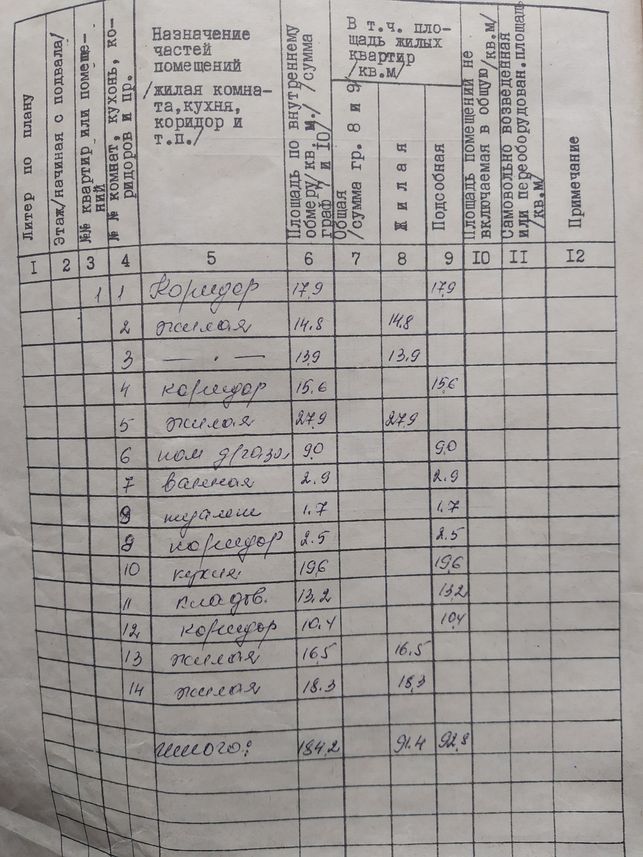 Литер по плану
Этаж/начиная с подвала/
№№ квартир или помеще-
ний
№ № комнат, кухонь, ко-
ридоров и пр.
Назначение
частей
помещений
/жилая комна-
та, кухня,
коридор и
т.п./
Площадь по внутреннему
обмеру/кв. м./ /сумма
граф 7 и 10/
В т.ч. пло-
щадь жилых
квартир
/кв.м/
Общая
/сумма гр. 8 и 9/
Жилая
Подсобная
Площадь помещений не
включаемая в общую/кв.м/
Самовольно возведенная
или переоборудован.площадь
/кв.м/
Примечание
I 2 3 4 5 6 7 8 9 IO II I2
1 1 Коридор 17,9 17,9
2 жилая 14.8 14.8
3 — " — 13,9 13,9
4 коридор 15,6 15,6
5 жилая 27,9 27,9
6 9,0 9,0
7 ванная 2.9 2.9
8 туалет 1.7 1.7
9 коридор 2.5 2.5
10 кухня 19,6 19,6
11 кладов. 13,2 13,2
12 коридор 10.4 10,4
13 жилая 16,5 16,5
14 жилая 18.3 18,3
итого: 184.2 91.4 92,8